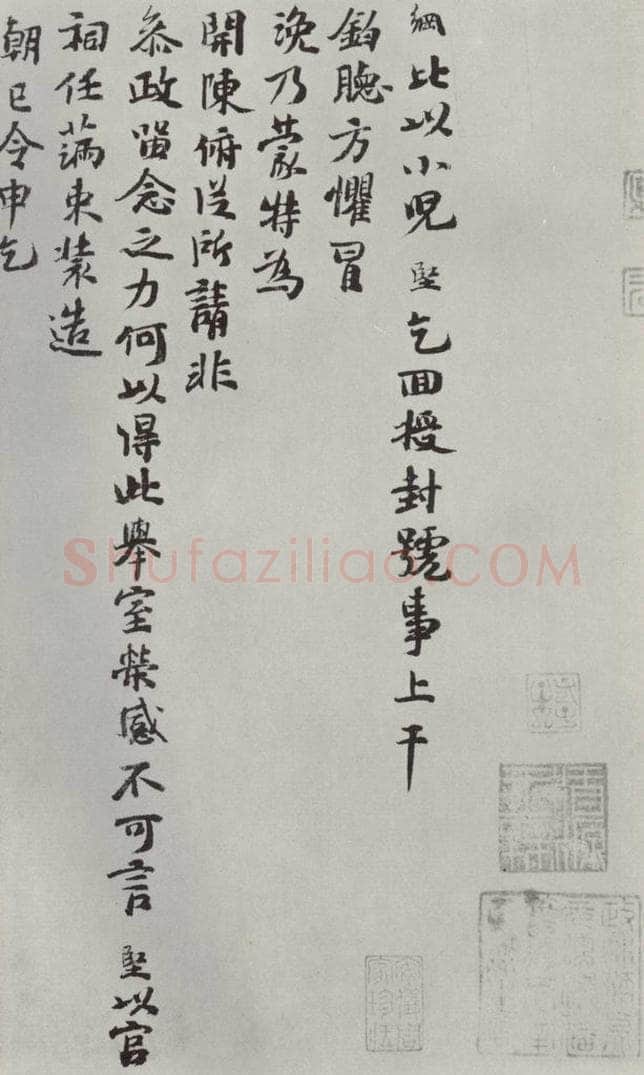 綱比以小兒堅乞回授封號事上干
鈞聽方懼冒
浼乃蒙特為
開陳俯從所請非
參政留念之力何以得此舉室榮感不可言堅以官
祠任滿束裝造
朝已令申乞
Shufaziliao.COM